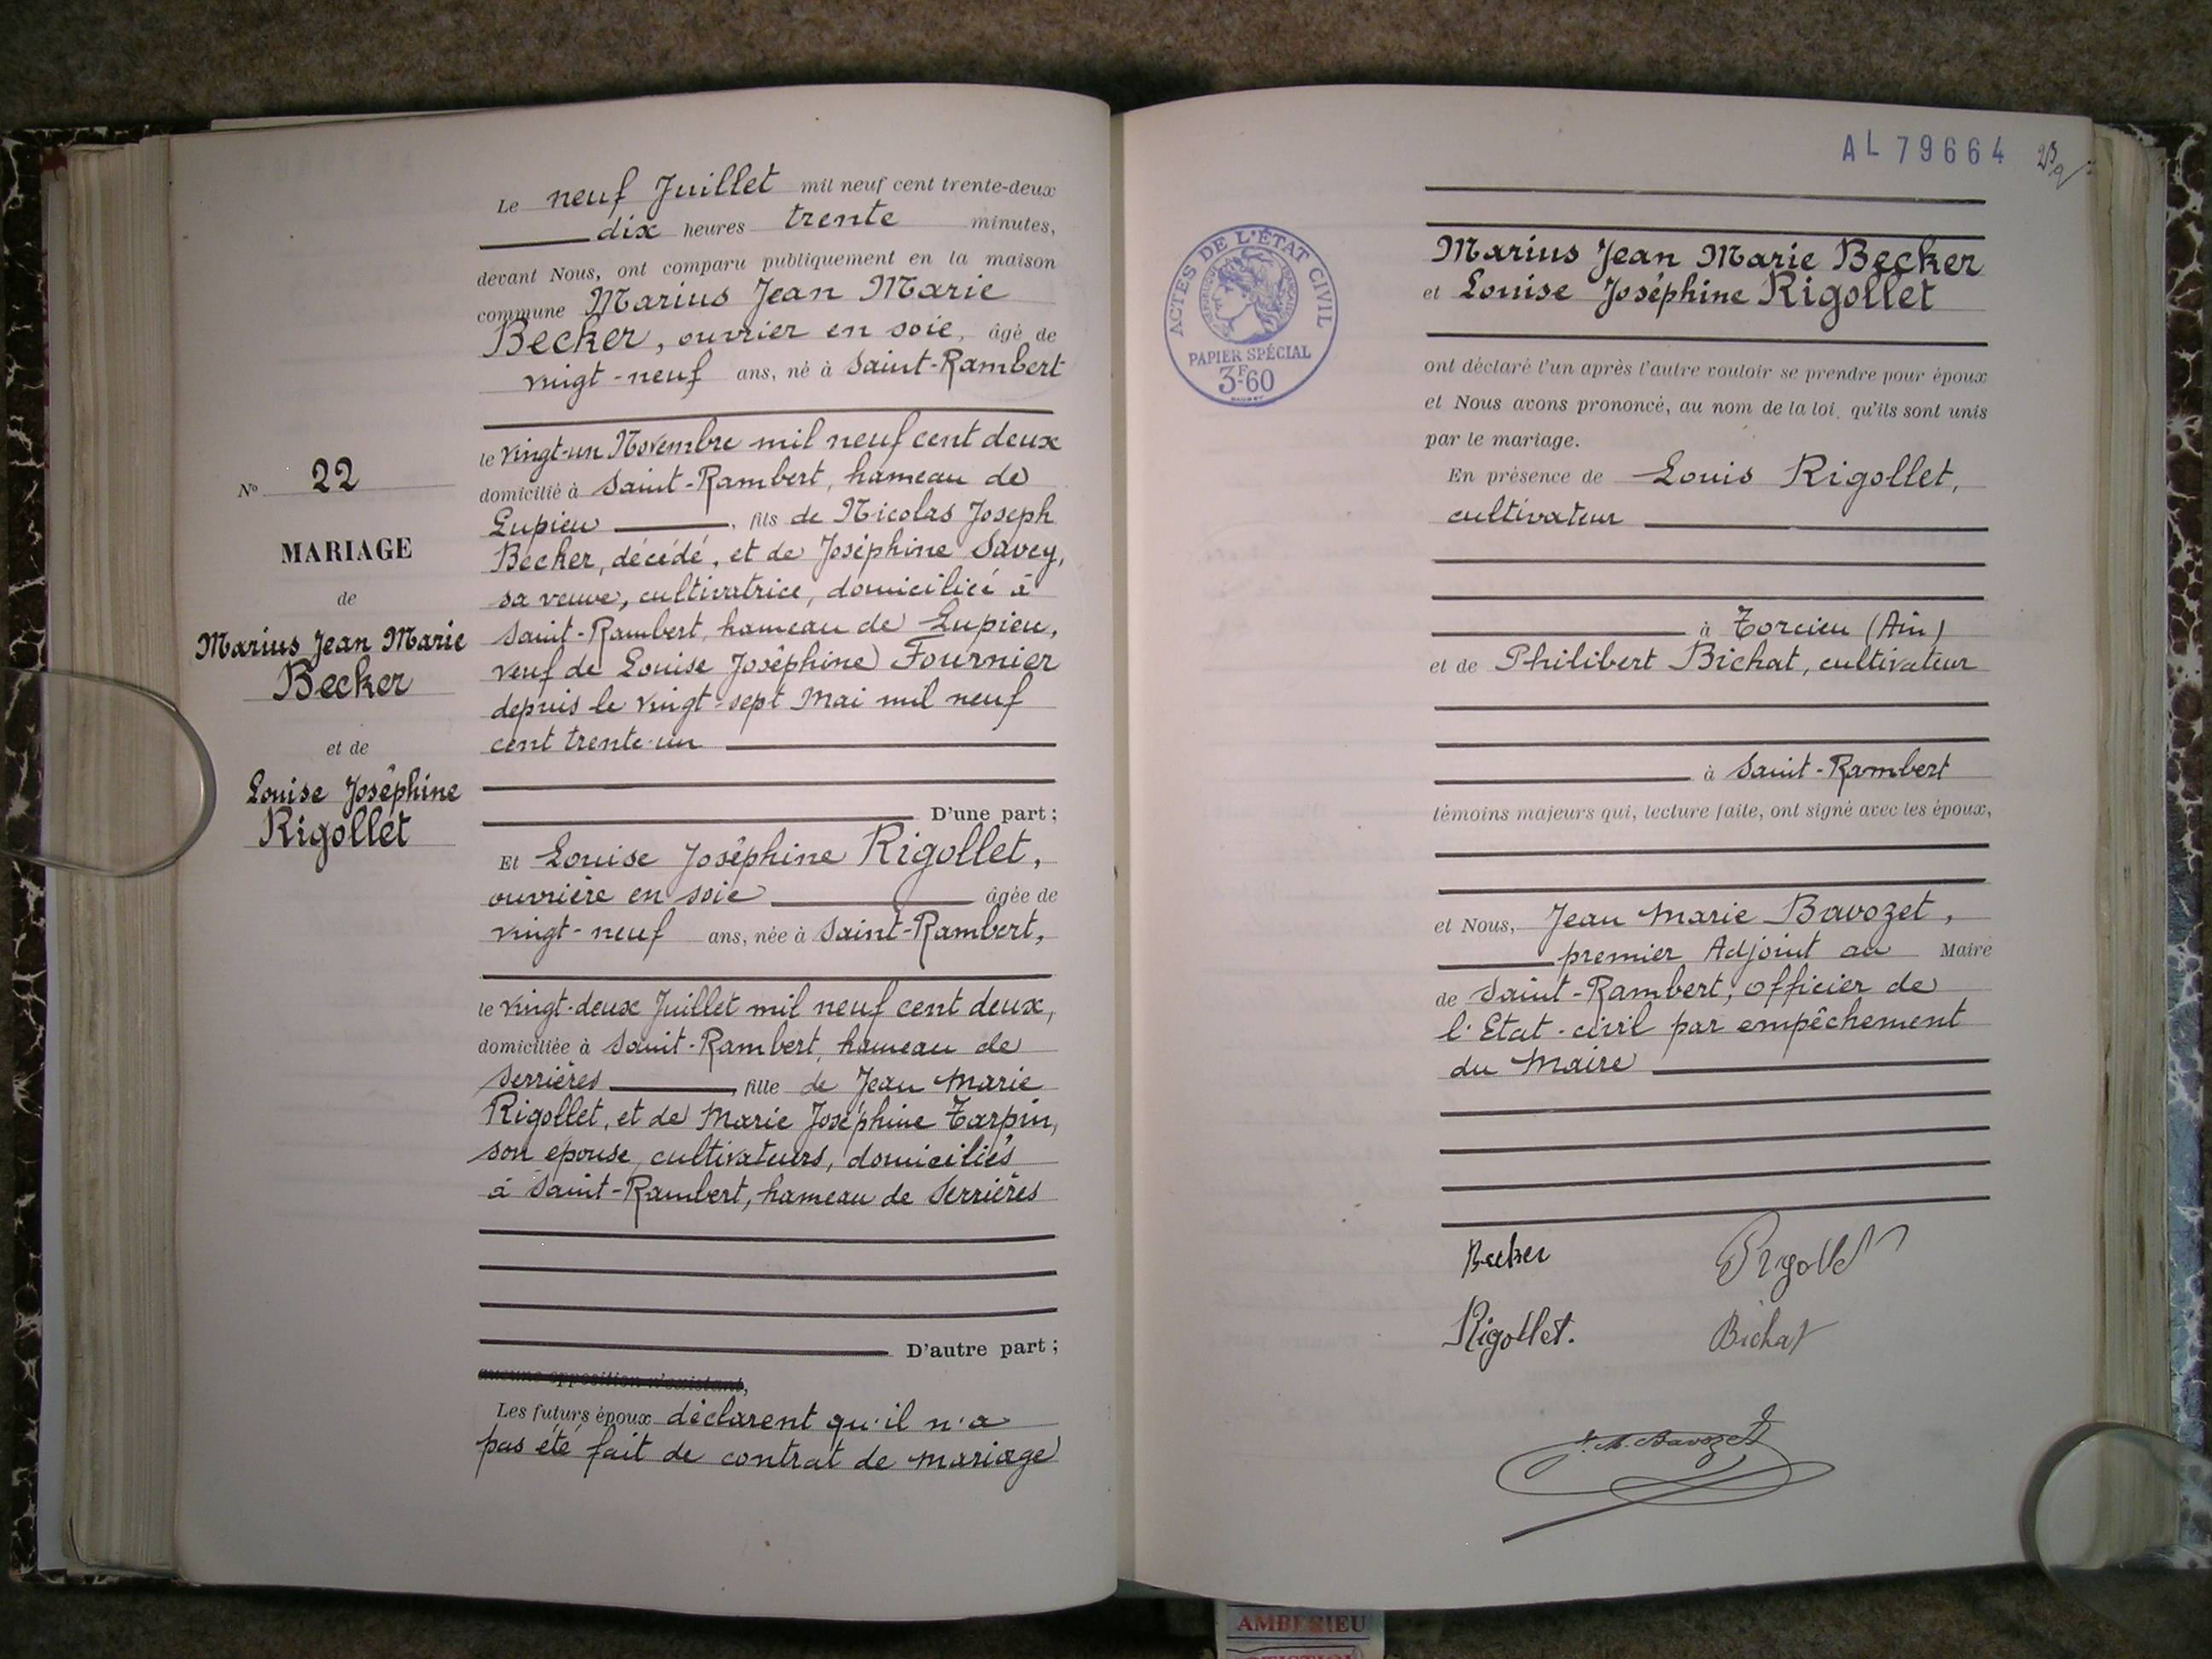 Le neuf Juillet mil neuf cent trente-deux
dix heures trente minutes,
devant Nous, ont comparu publiquement en la maison
commune Marius Jean Marie
Becker, ouvrier en soie, âgé de
vingt-neuf ans, né à Saint-Rambert
le vingt-un Novembre mil neuf cent deux
domicilié à Saint-Rambert, hameau de
Lupieu, fils de Nicolas Joseph
Becker, décédé, et de Joséphine Savey,
sa veuve, cultivatrice, domiciliée à
Saint-Rambert, hameau de Lupieu,
veuf de Louise Joséphine Fournier
depuis le vingt-sept Mai mil neuf
cent trente-un
D'une part;
Et Louise Joséphine Rigollet,
ouvrière en soie âgée de
vingt-neuf ans, née à Saint-Rambert,
le vingt-deux Juillet mil neuf cent deux,
domiciliée à Saint-Rambert, hameau de
Serrières, fille de Jean Marie
Rigollet, et de Marie Joséphine Tarpin,
son épouse, cultivateurs, domiciliés
à Saint-Rambert, hameau de Serrières
D'autre part;
aucune opposition n'existant,
Les futurs époux déclarent qu'il n'a
pas été fait de contrat de mariage
No 22
MARIAGE
de
Marius Jean Marie
Becker
et de
Louise Joséphine
Rigollet
AL 79664
ACTES DE L'ÉTAT CIVIL
PAPIER SPÉCIAL
3F.60
Marius Jean Marie Becker
et Louise Joséphine Rigollet
ont déclaré l'un après l'autre vouloir se prendre pour époux
et Nous avons prononcé, au nom de la loi, qu'ils sont unis
par le mariage.
En présence de Louis Rigollet,
cultivateur
à Torcieu (Ain)
et de Philibert Bichat, cultivateur
à Saint-Rambert
témoins majeurs qui, lecture faite, ont signé avec les époux,
et Nous, Jean Marie Bavozet,
premier Adjoint au Maire
de Saint-Rambert, officier de
l'Etat-civil par empêchement
du Maire
Becker Rigollet
Rigollet. Bichat
J. M. Bavozet
AMBERIEU